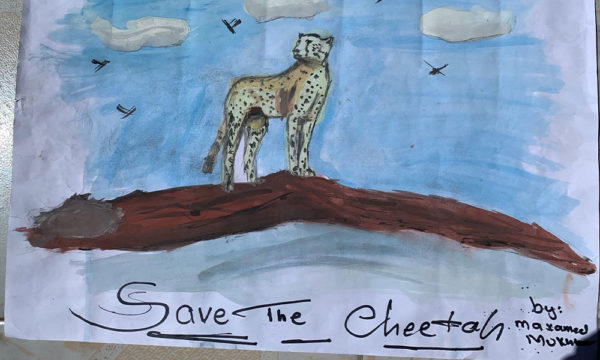 Save The Cheetah
by:
Maxamed